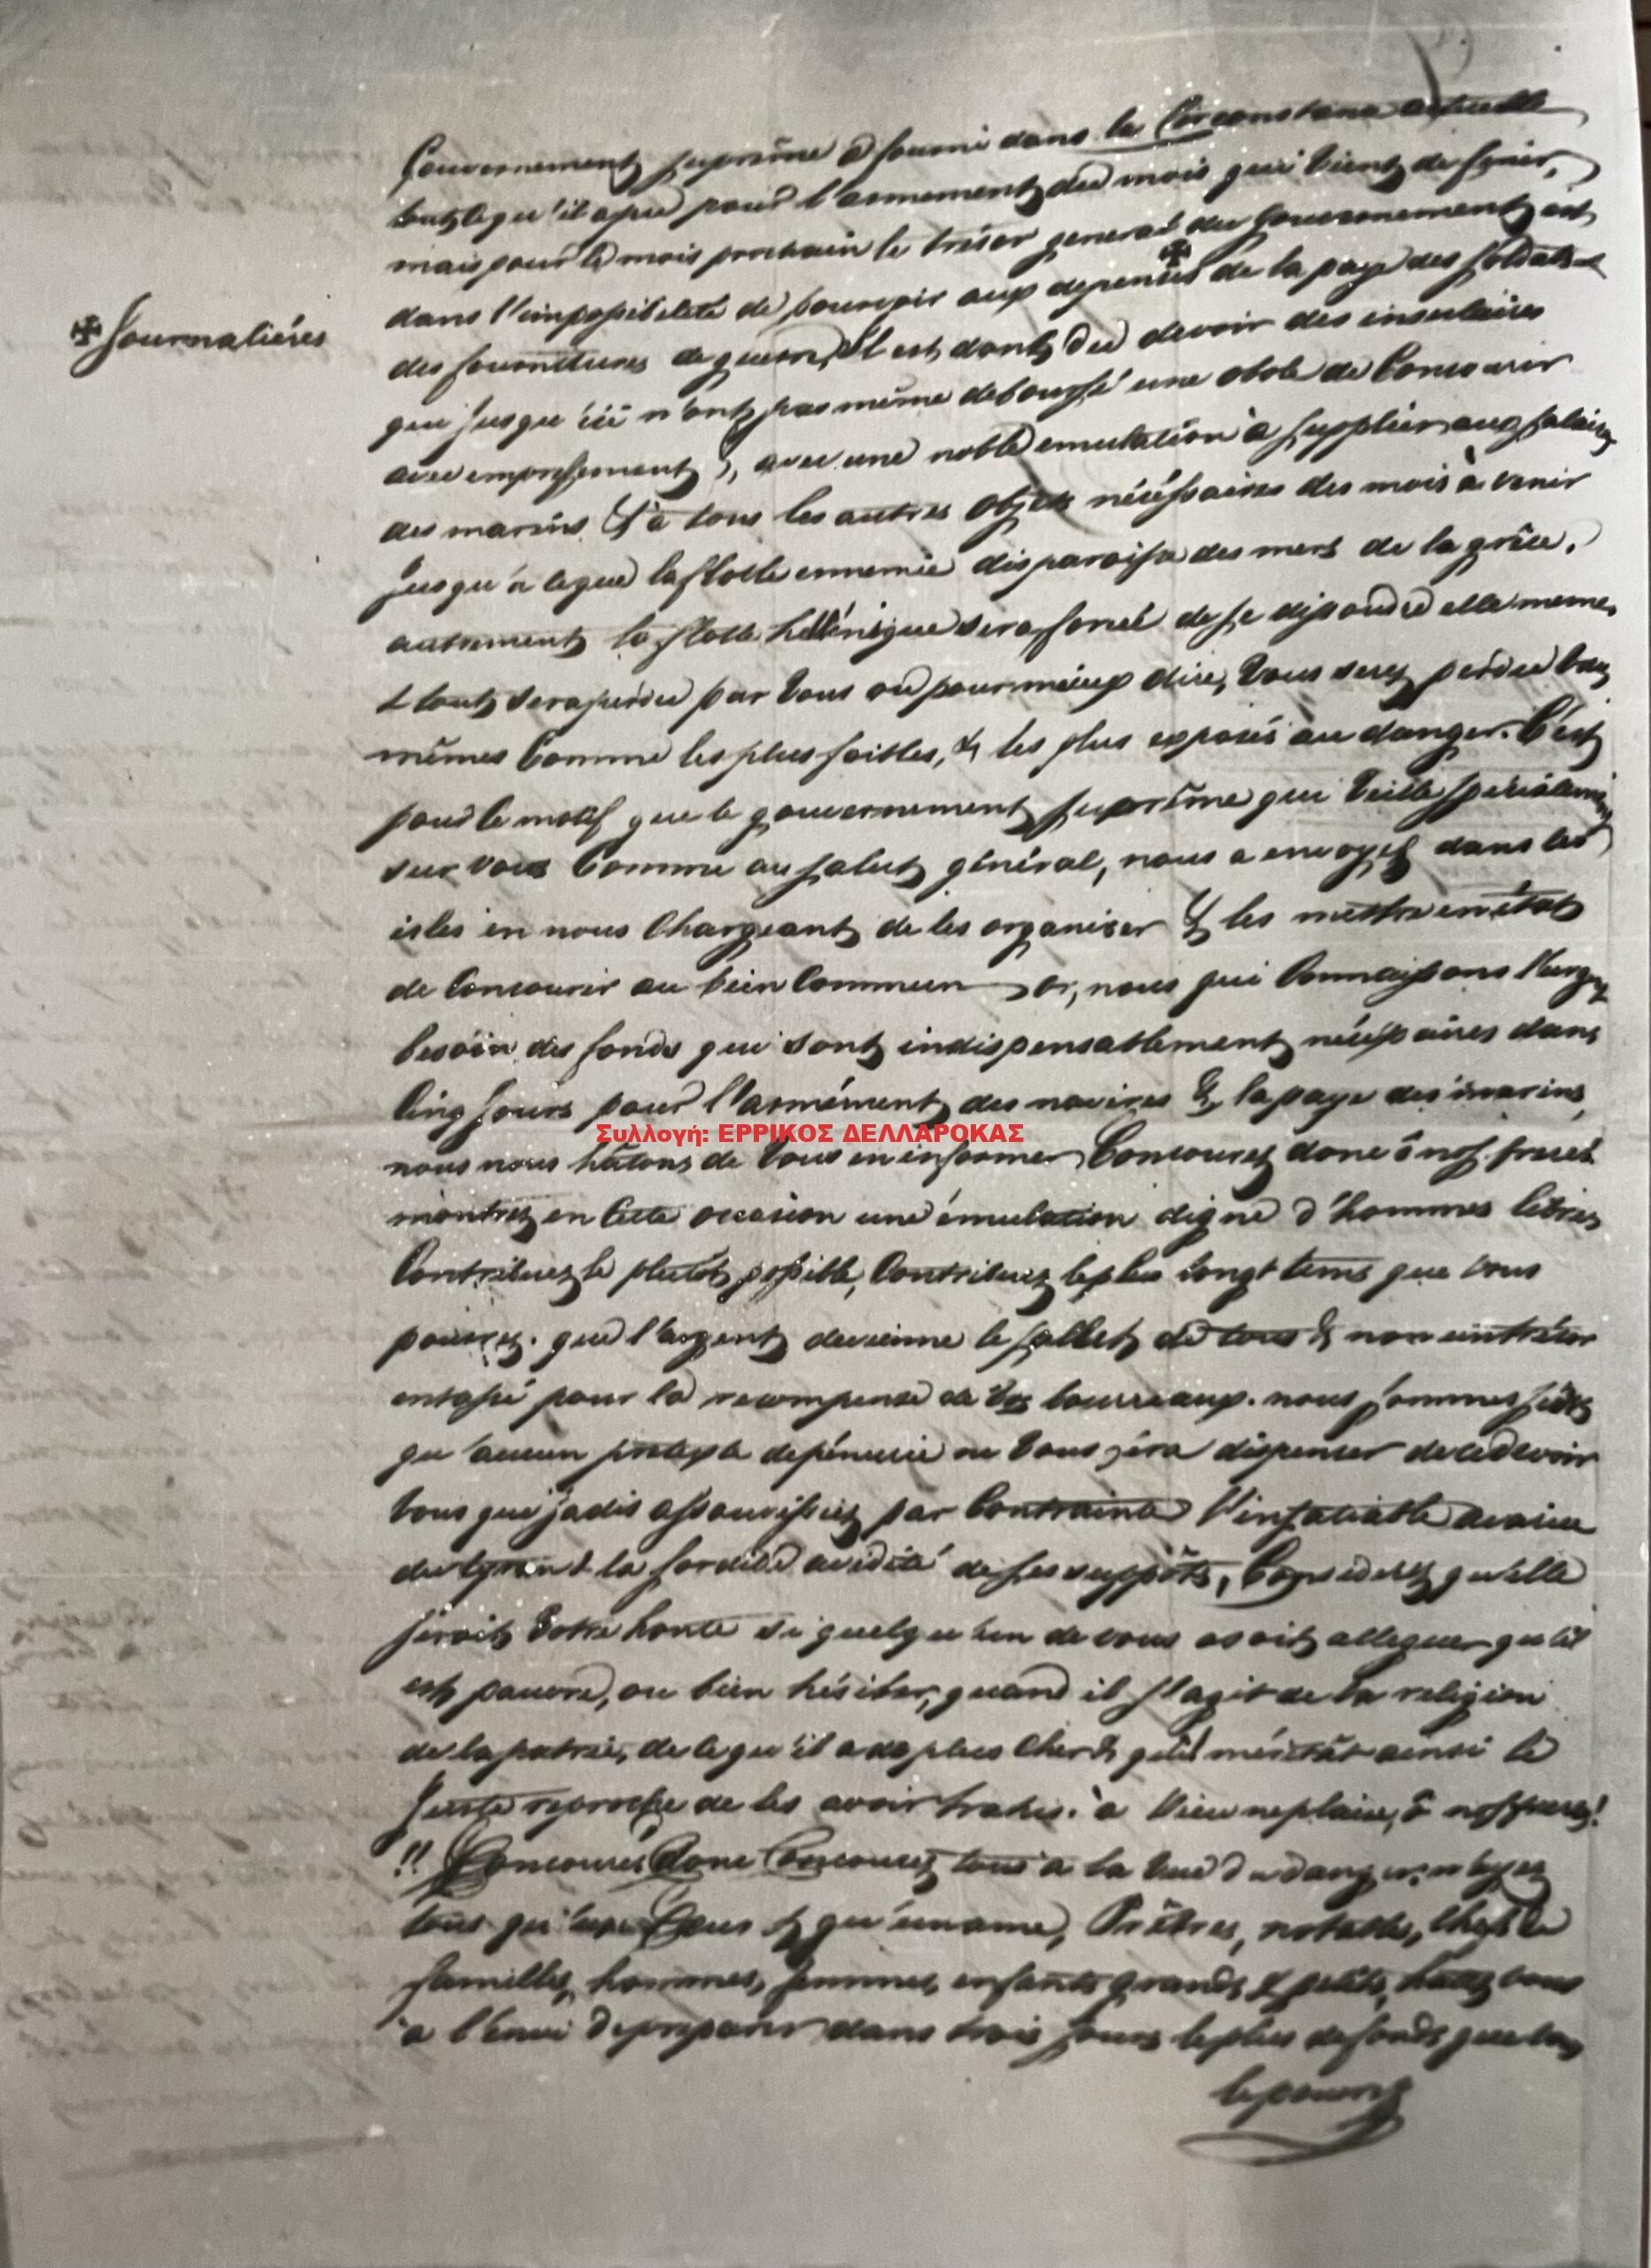 Gouvernement suprême a fourni dans la Circonstance actuelle
tout ce qu'il a pu pour l'armement du mois qui vient de finir,
mais pour le mois prochain le trésor general du Gouvernement est
dans l'impossibileté de pourvoir aux depenses ✠ de la paye des soldats &
✠ Journaliéres
des fournitures de guerre, Il est donc du devoir des insulaires
qui jusqu'ici n'ont pas même deboursé une obole de Concourir
avec empressement, avec une noble emulation à supplier aux salaires
des marins & à tous les autres objets nécéssaires des mois à venir
jusqu'a ce que la flotte ennemie disparoisse des mers de la grêce.
autrement la flotte hellénique sera forcée de se dissoudre elle meme,
& tout sera perdu par vous ou pour mieux dire, vous serez perdu vous
mêmes Comme les plus foibles, & les plus exposés au danger. C'est
pour le motif que le gouvernement suprême qui veille spécialement
sur vous Comme au salut général, nous a envoyés dans les
isles en nous Chargeant de les organiser & les mettre en état
de Concourir au bien Commun or, nous qui Connaissons l'urgent
besoin des fonds qui sont indispensablement nécéssaires dans
Cinq jours pour l'armément des navires & la paye des marins,
Συλλογή: ΕΡΡΙΚΟΣ ΔΕΛΛΑΡΟΚΑΣ
nous nous hâtons de vous en informer, Concourez donc ô nos freres
montrez en Cette occasion une émulation digne d'hommes libres
Contribuez le plutôt possible, Contribuez le plus longt tems que vous
pourrez. que l'argent devienne le salut de tous & non un trésor
entassé pour la recompense de vos bourreaux. nous sommes surs
qu'aucun pretexte de pénurie ne vous fera dispenser de ce devoir
vous que jadis assouvissiez par Contrainte l'insatiable avarice
du tyran & la sordide avidité de ses suppôts, Considerez qu'elle
seroit votre honte si quelqu'un de vous osoit alleguer qu'il
est pauvre, ou bien hésiter, quand il s'agit de la religion
de la patrie, de ce qu'il a de plus Cher & qu'il méritât ainsi le
juste reproche de les avoir trahis. à Dieu ne plaise, ô nos freres!
!! Concourez donc Concourez tous à la vue du danger, n'ayez
tous qu'un Coeur & qu'une ame, Prêtres, notable, Chefs de
familles, hommes, femmes, enfants grands & petits, hâtez vous
à l'envi de preparer dans trois jours le plus de fonds que vous
le pourrez